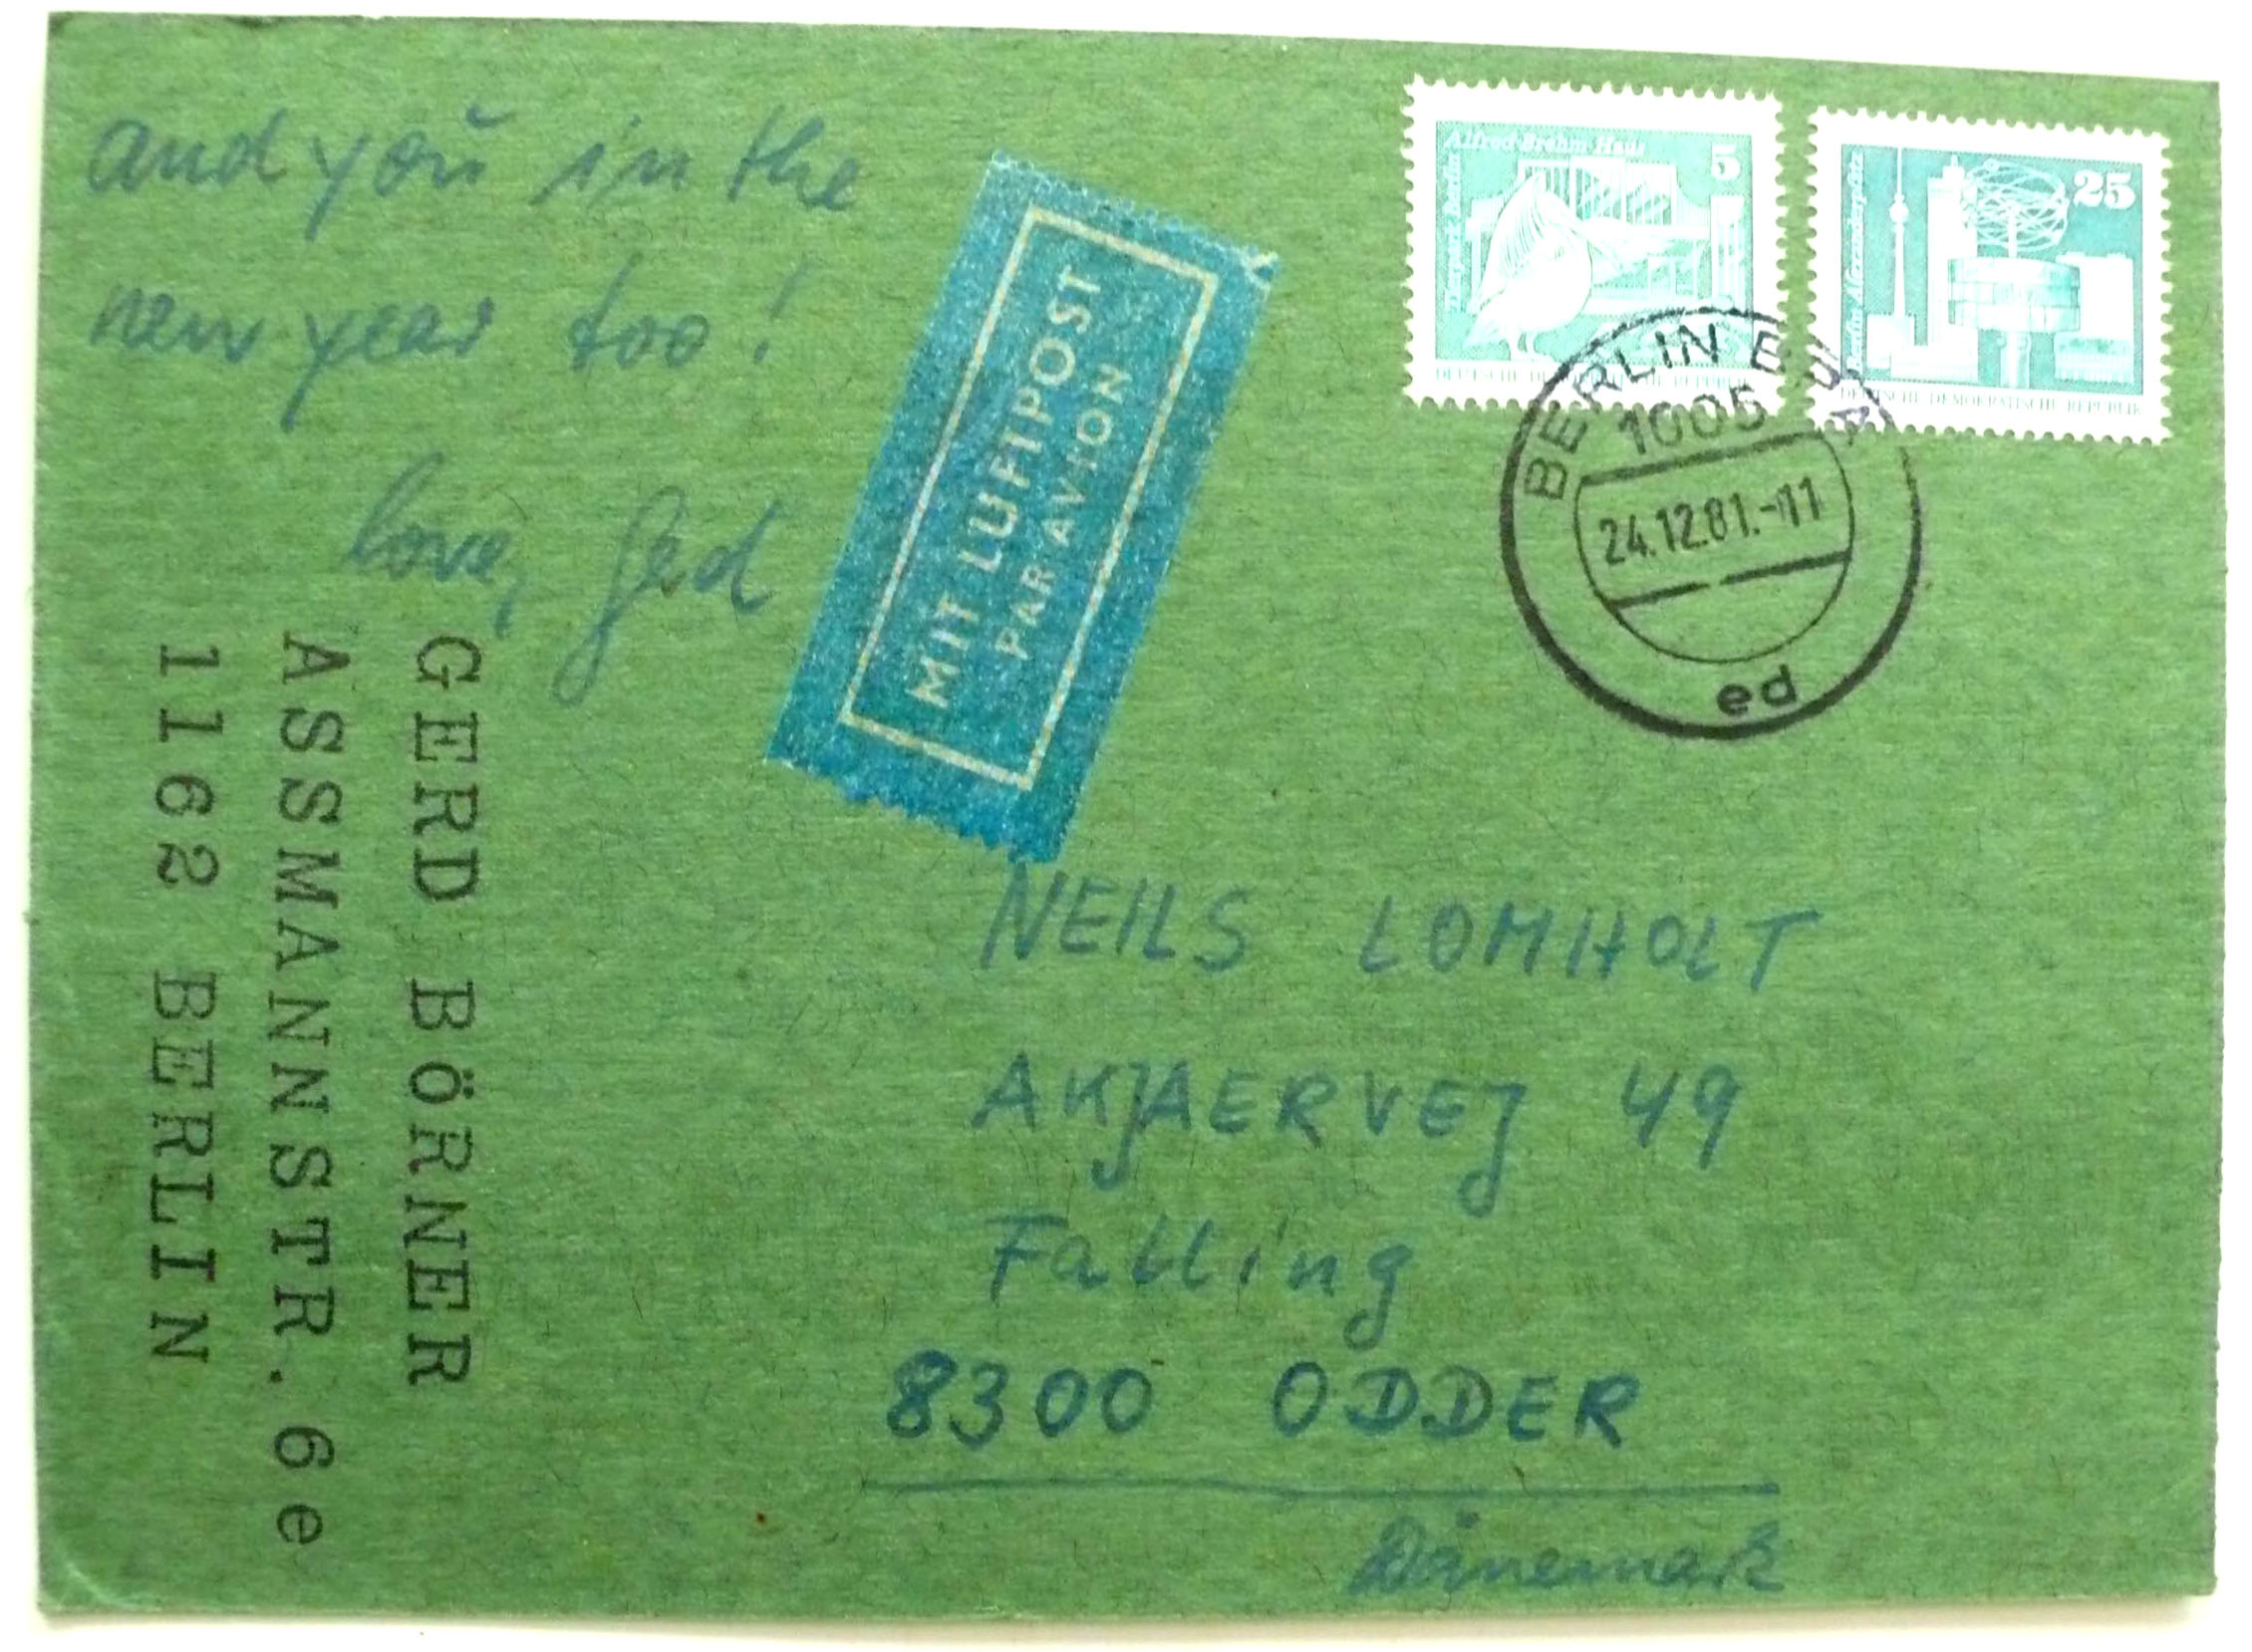 and you in the
new year too!
love, Gerd
MIT LUFTPOST
PAR AVION
Alfred-Brehm-Haus
Tierpark Berlin
5
DEUTSCHE DEMOKRATISCHE REPUBLIK
25
Berlin-Alexanderplatz
DEUTSCHE DEMOKRATISCHE REPUBLIK
BERLIN BPA
1005
24.12.81.-11
ed
GERD BÖRNER
ASSMANNSTR. 6e
1162 BERLIN
NEILS LOMHOLT
AKJAERVEJ 49
Falling
8300 ODDER
Dänemark